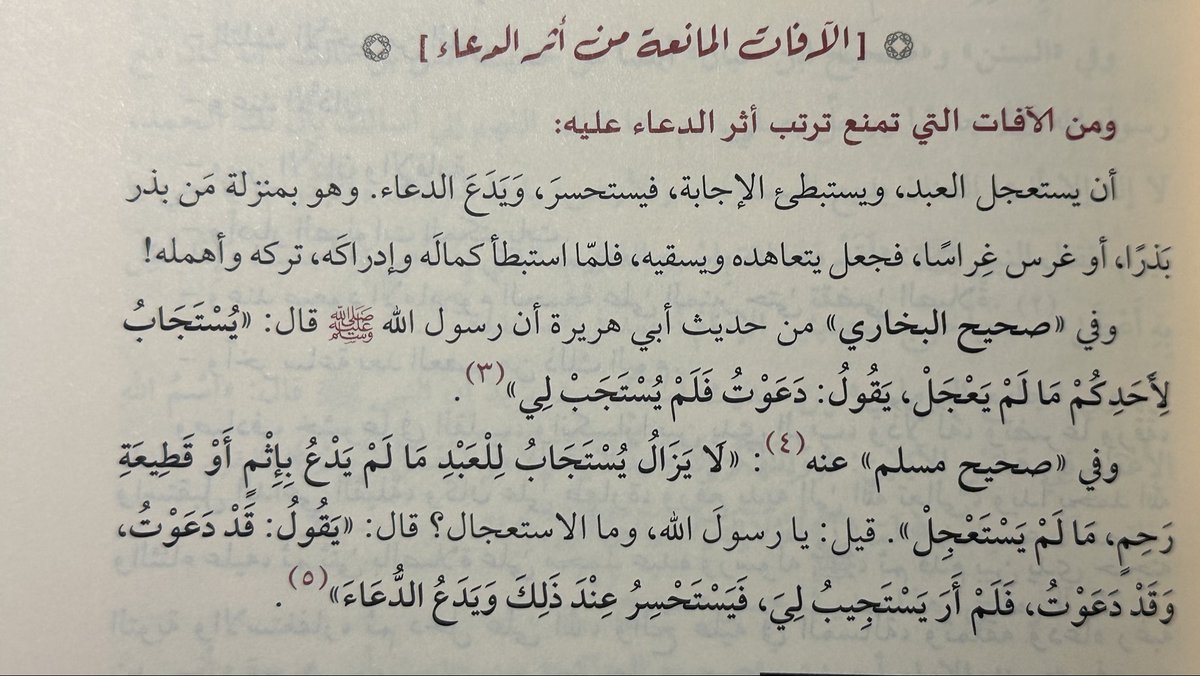 [الآفات المانعة من أثر الدعاء]
ومن الآفات التي تمنع ترتب أثر الدعاء عليه:
أن يستعجل العبد، ويستبطئ الإجابة، فيستحسرَ، وَيَدَعَ الدعاء. وهو بمنزلة مَن بذر
بَذرًا، أو غرس غِراسًا، فجعل يتعاهده ويسقيه، فلمّا استبطأ كمالَه وإدراكَه، تركه وأهمله!
وفي «صحيح البخاري» من حديث أبي هريرة أن رسول الله ﷺ قال: «يُسْتَجَابُ
لِأَحَدِكُمْ مَا لَمْ يَعْجَلْ، يَقُولُ: دَعَوْتُ فَلَمْ يُسْتَجَبْ لِي»(٣).
وفي «صحيح مسلم» عنه(٤): «لَا يَزَالُ يُسْتَجَابُ لِلْعَبْدِ مَا لَمْ يَدْعُ بِإِثْمٍ أَوْ قَطِيعَةِ
رَحِمٍ، مَا لَمْ يَسْتَعْجِلْ». قيل: يا رسولَ الله، وما الاستعجال؟ قال: «يَقُولُ: قَدْ دَعَوْتُ،
وَقَدْ دَعَوْتُ، فَلَمْ أَرَ يَسْتَجِيبُ لِيَ، فَيَسْتَحْسِرُ عِنْدَ ذَلِكَ وَيَدَعُ الدُّعَاءَ»(٥).